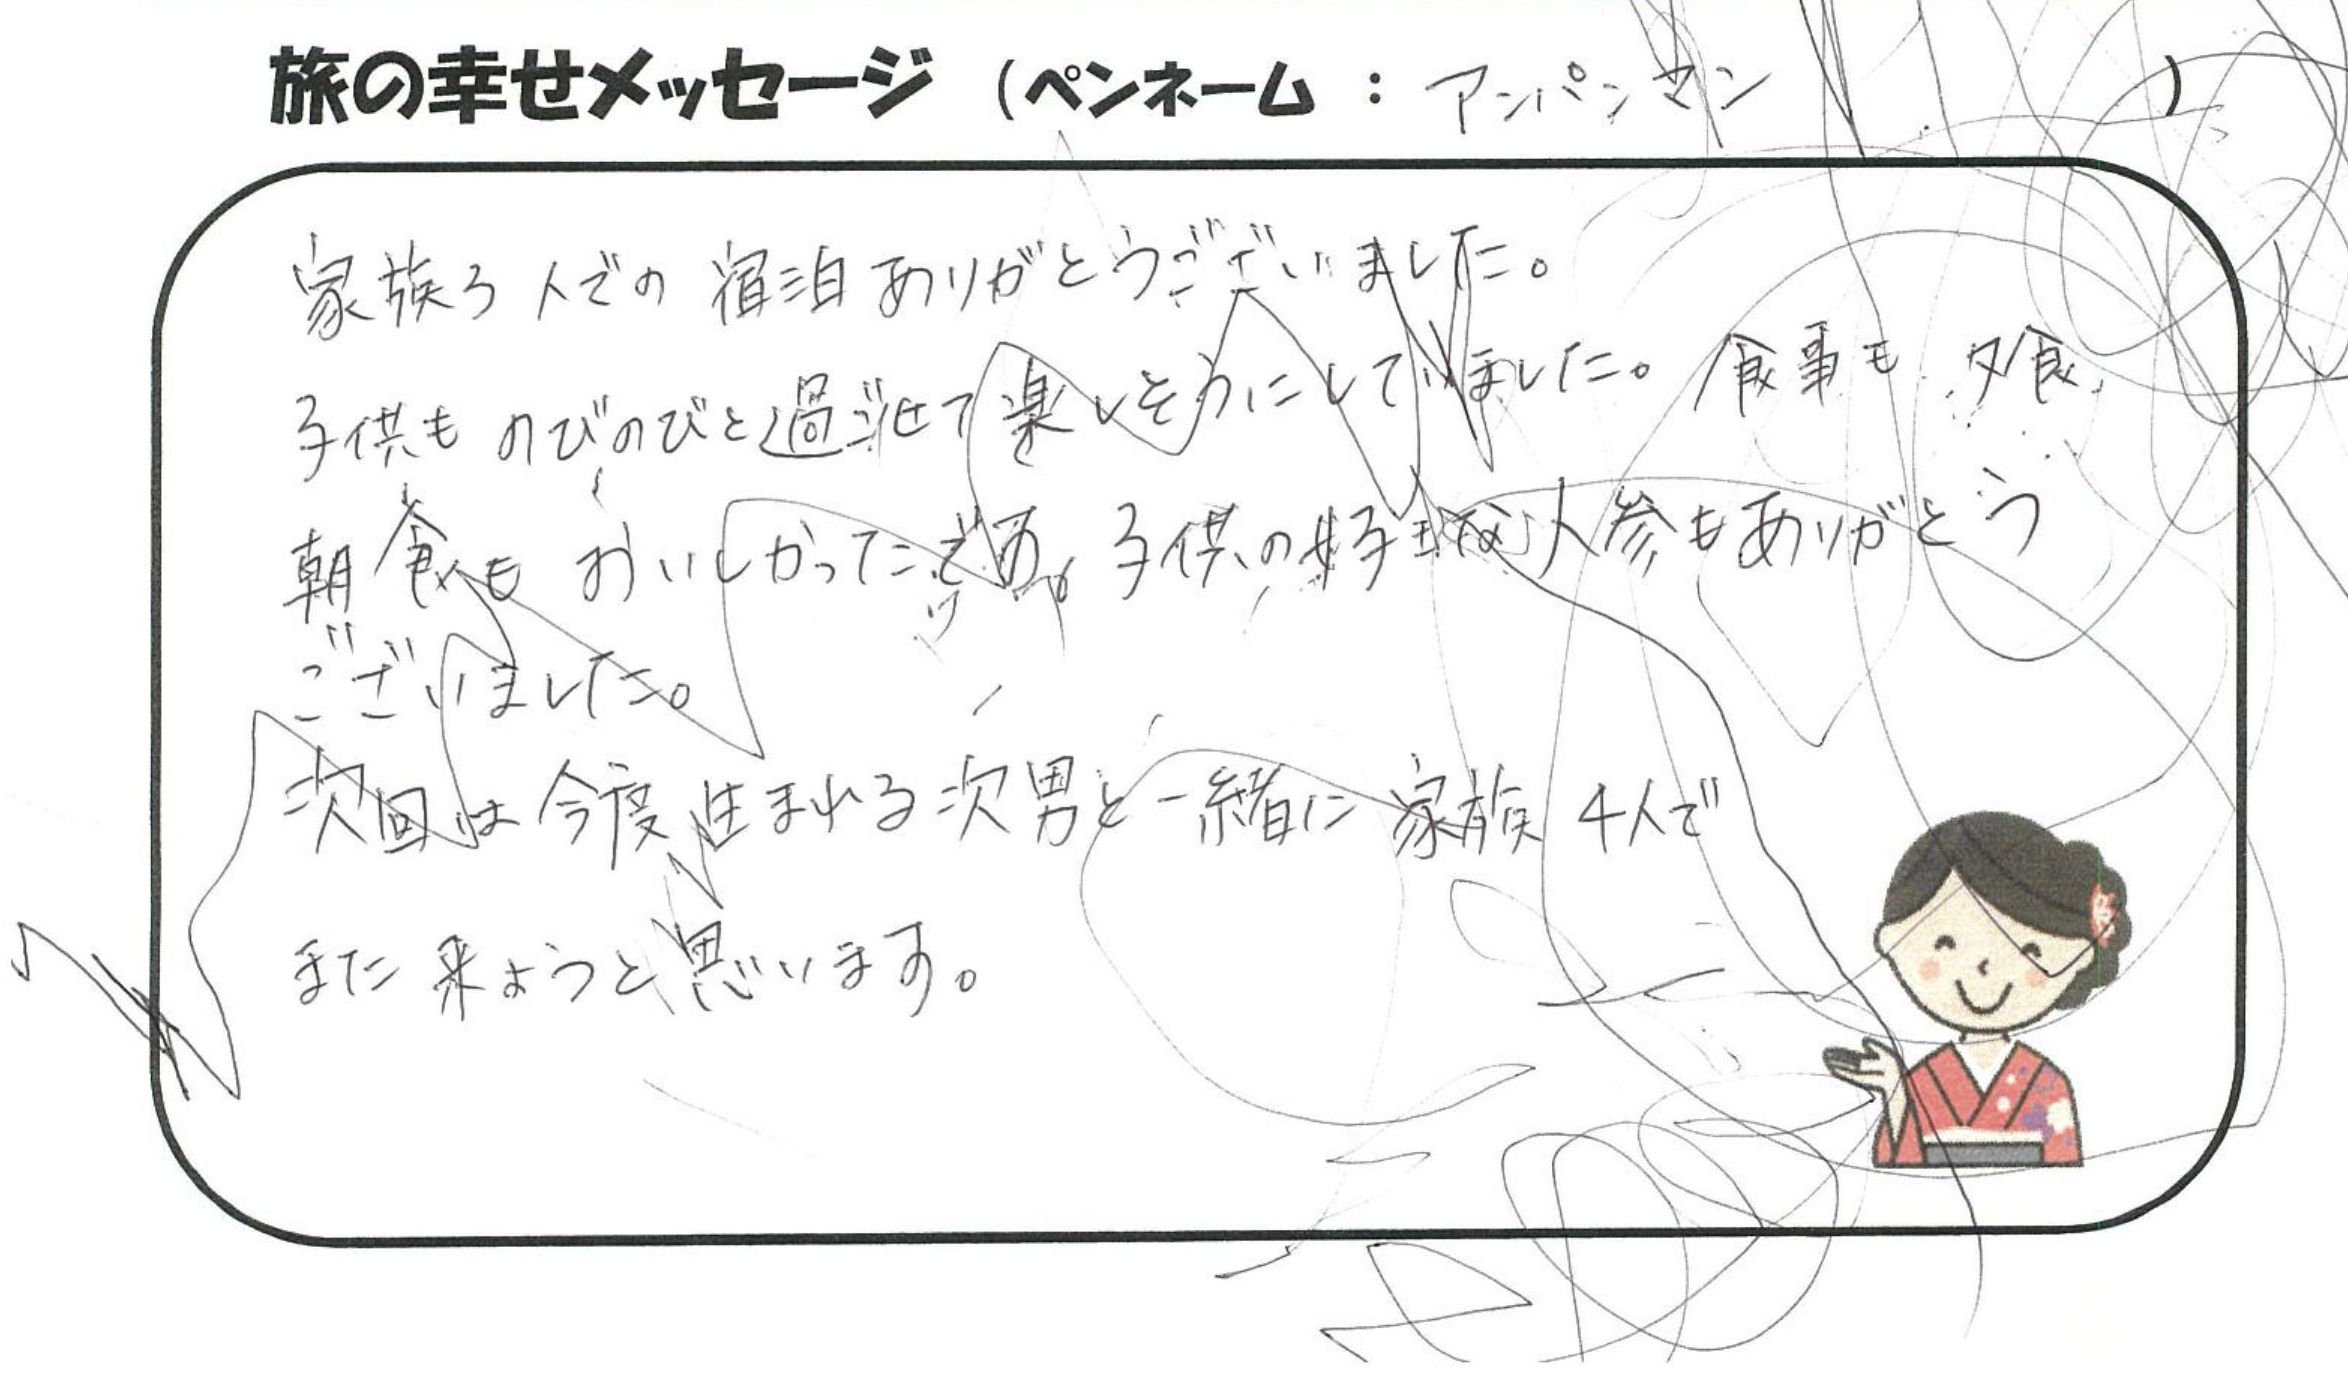 旅の幸せメッセージ (ペンネーム : アンパンマン )
家族3人での宿泊ありがとうございました。
子供ものびのびと過ごせて楽しそうにしていました。食事も夕食、
朝食もおいしかったです。子供の好きな人参もありがとう
ございました。
次回は今度生まれる次男と一緒に家族4人で
また来ようと思います。